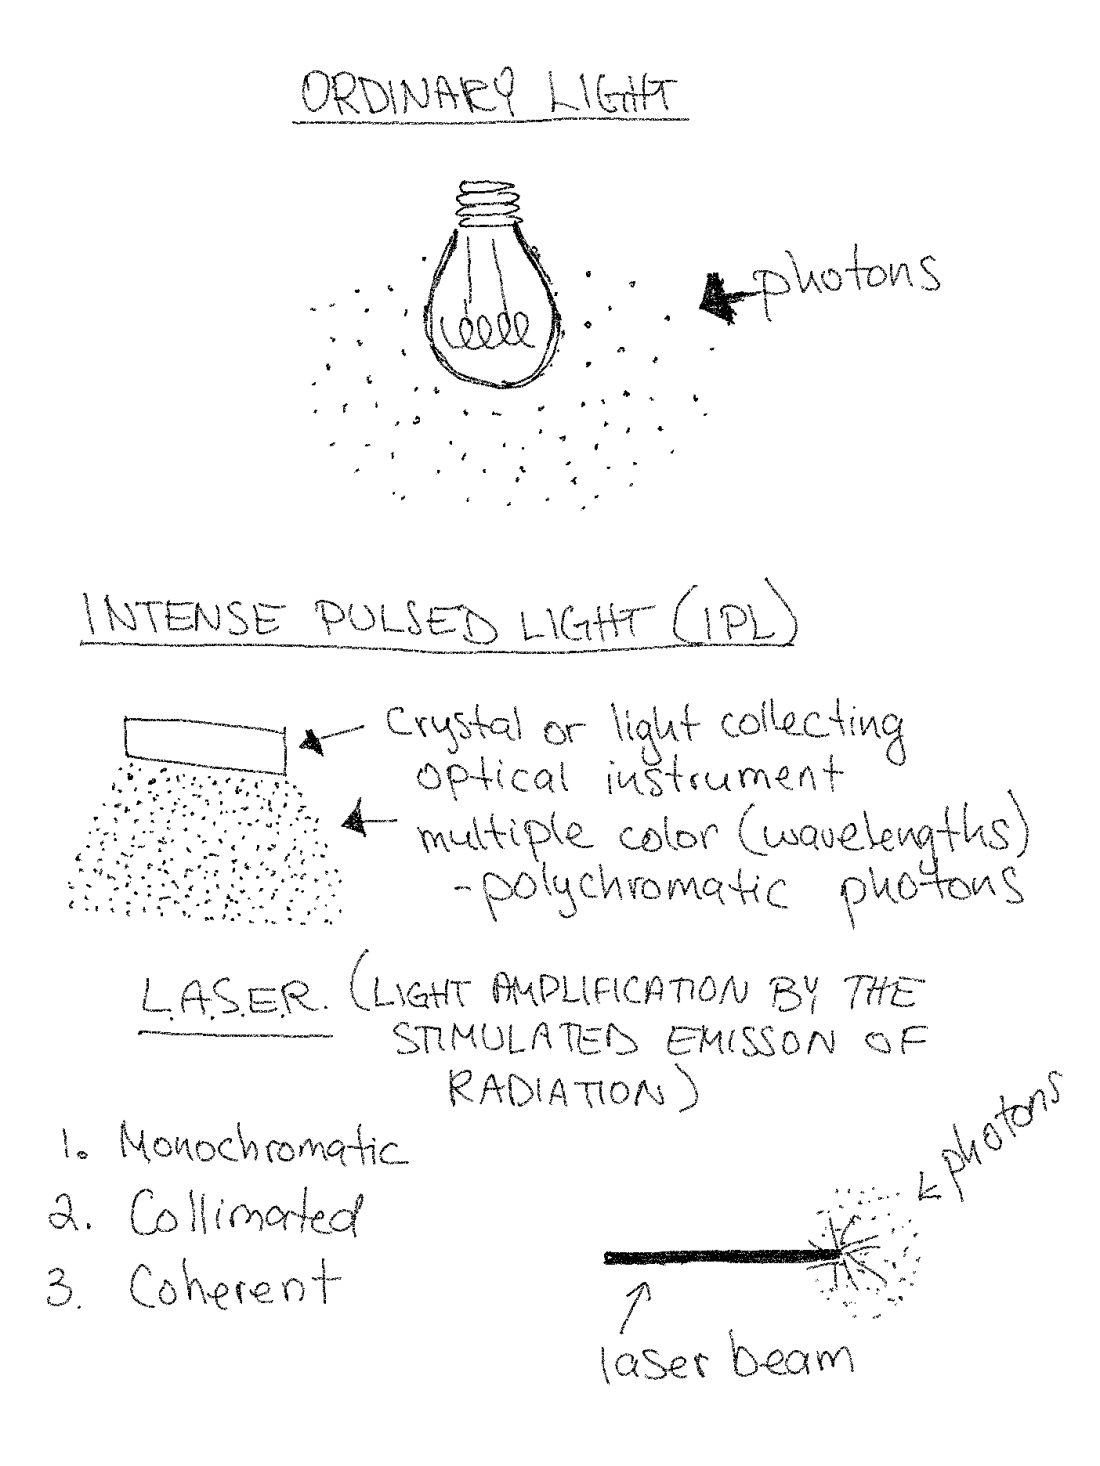 ORDINARY LIGHT
photons
INTENSE PULSED LIGHT (IPL)
Crystal or light collecting
optical instrument
multiple color (wavelengths)
-polychromatic photons
L.A.S.E.R. (LIGHT AMPLIFICATION BY THE
STIMULATED EMISSON OF
RADIATION)
1. Monochromatic
2. Collimated
3. Coherent
photons
laser beam